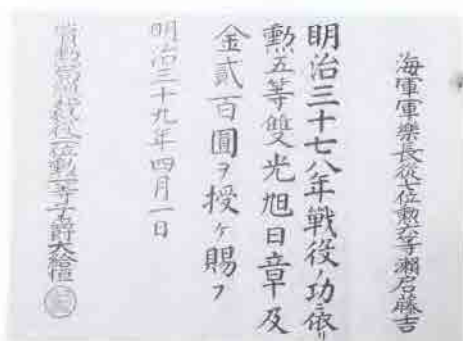 海軍軍樂長從七位勲六等瀬戸口藤吉
明治三十七八年戦役ノ功ニ依リ
勲五等雙光旭日章及
金貳百圓ヲ授ケ賜フ
明治三十九年四月一日
賞勲局総裁従二位勲一等子爵大給恒